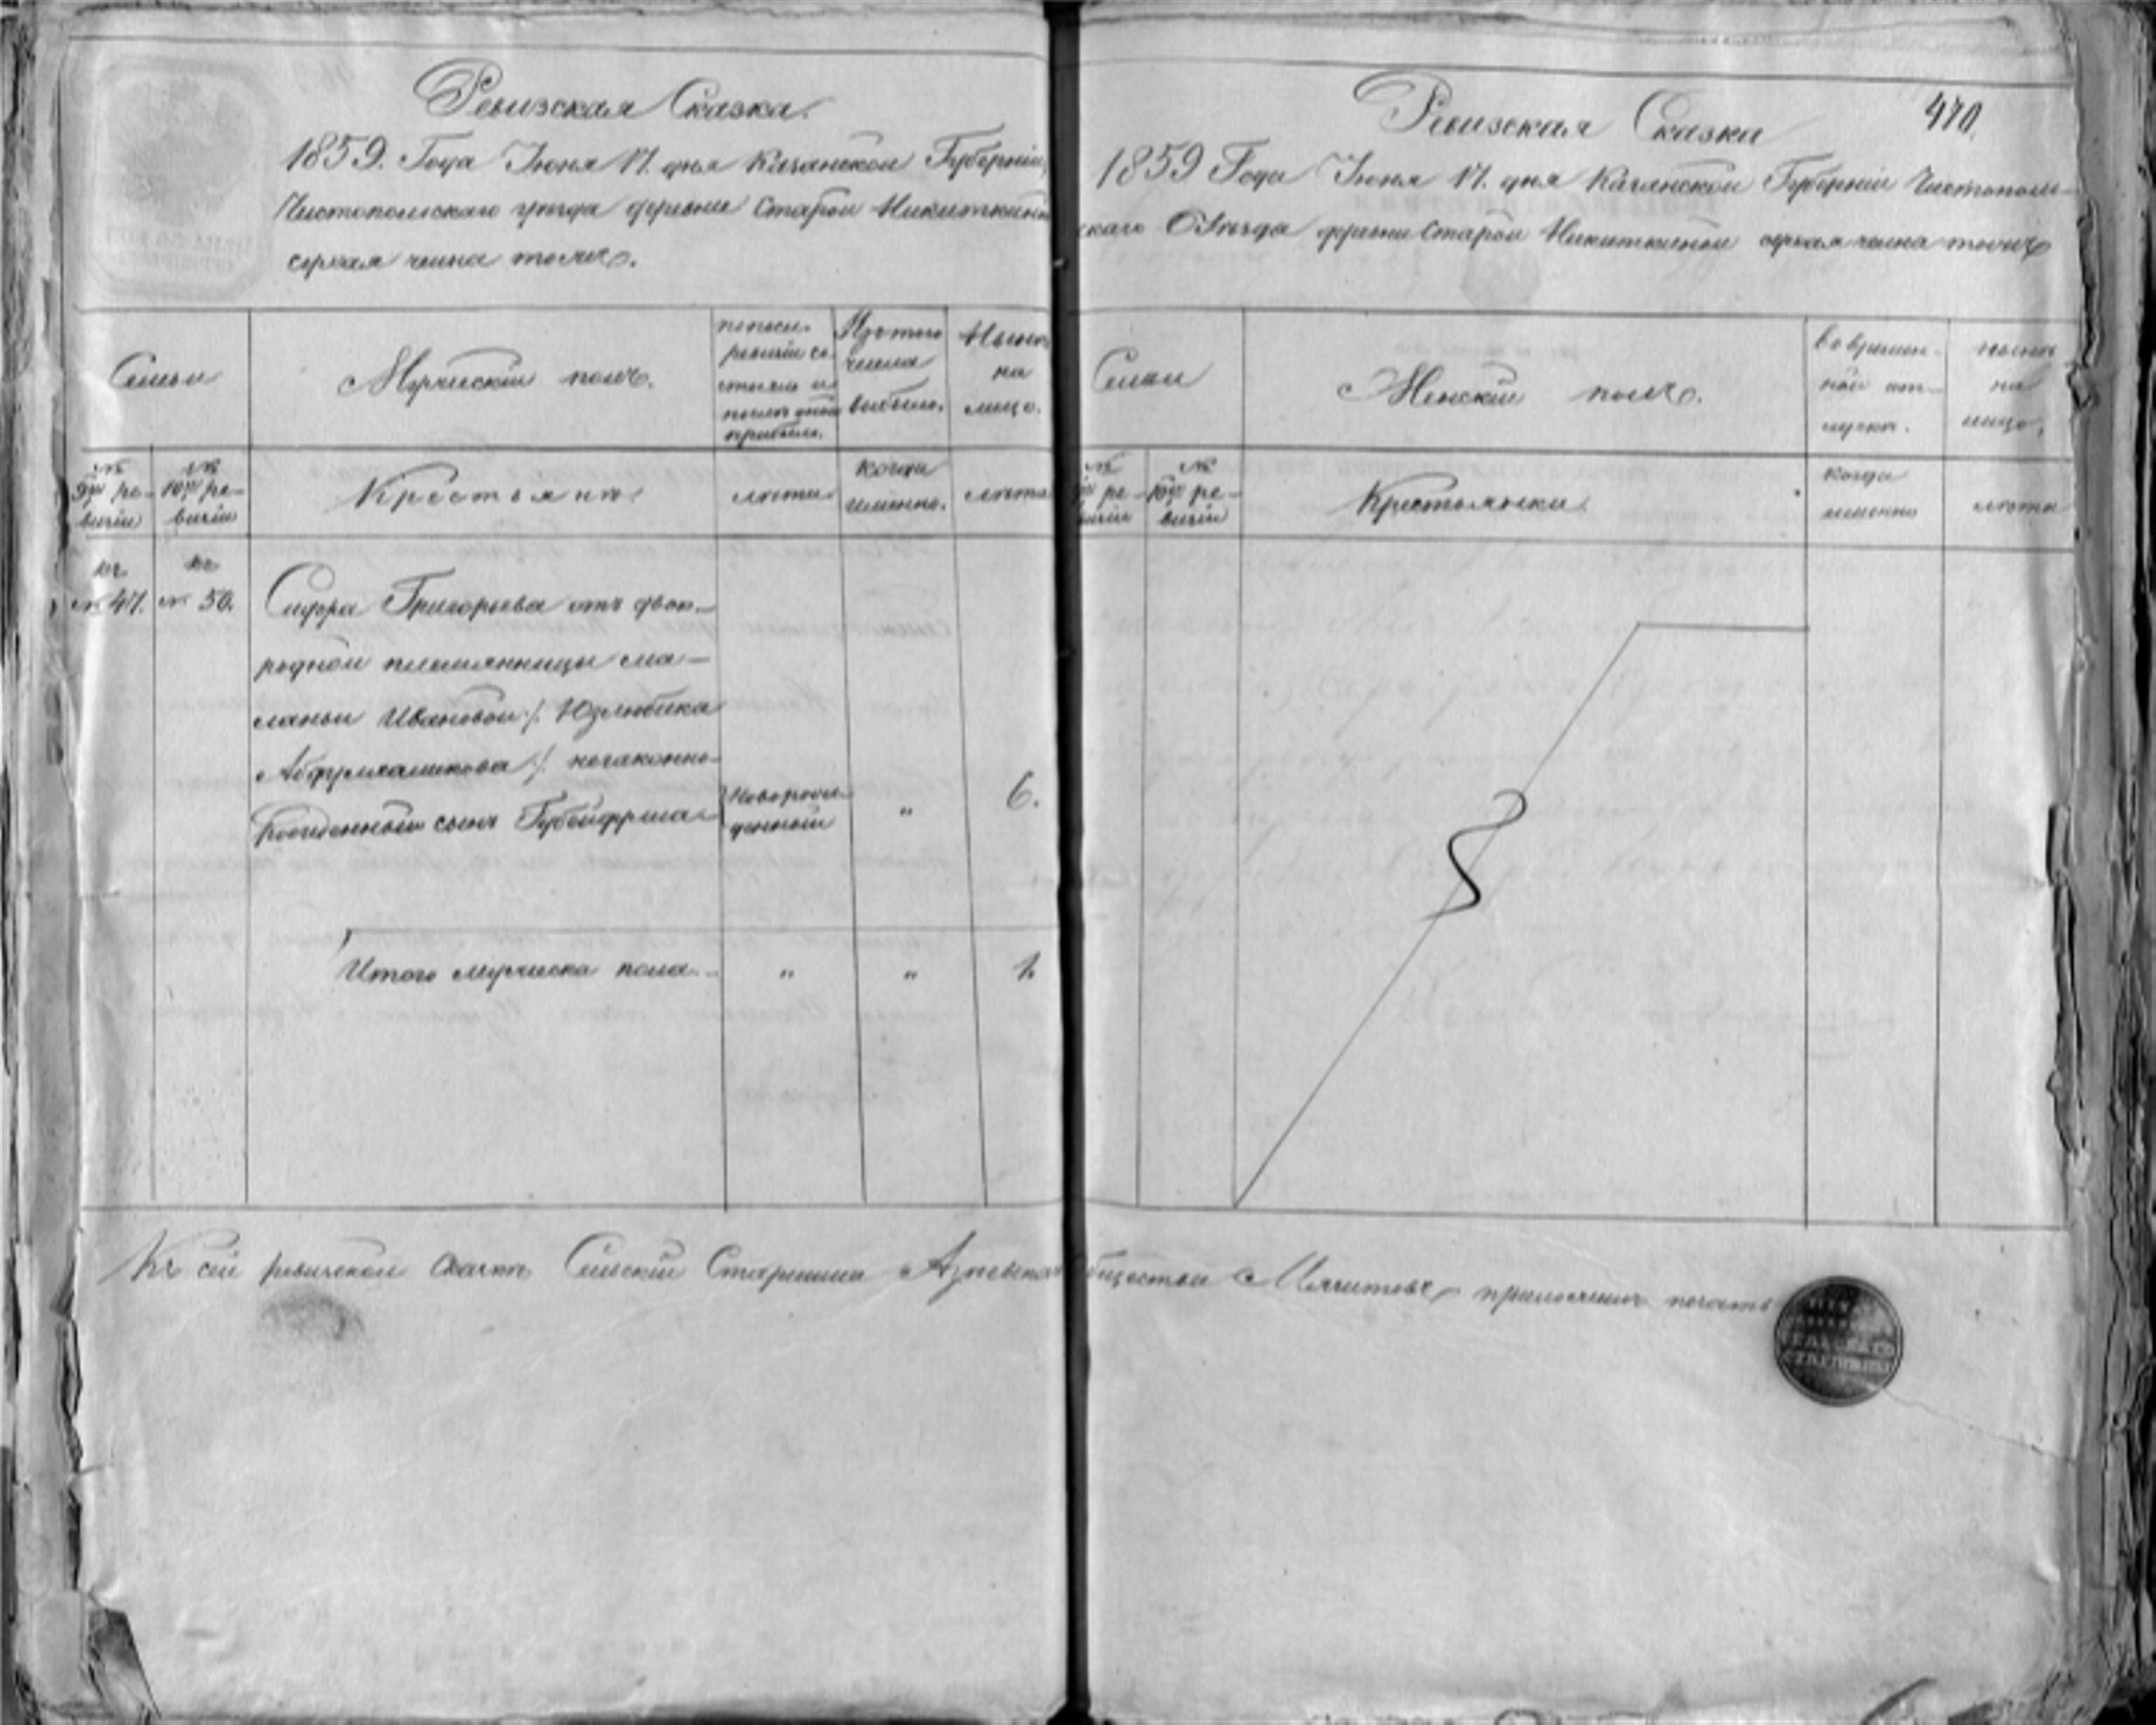 Ревизская Сказка.
1859. Года Июня 17. дня Казанской Губерніи,
Чистопольскаго уезда деревни Старой Никиткиной
о
Семьи
Мужескій полъ.
по
ревизіи со
стояло и
после оной
прибыло.
Изъ того
числа
выбыло.
Ныне
на
лицо.
№
9й ре-
визіи
№
10й ре-
визіи
Крестьянъ
лета.
когда
именно.
лета
къ
№ 47.
къ
№ 50.
Григорьева отъ двою-
родной племянницы ма-
ланьи Ивановой /. Юзлюбика
/. незаконно-
рожденный сынъ
Новорож-
денный
"
6.
Итого мужеска пола.
"
"
1.
470
Ревизская Сказка
1859 Года Июня 17. дня Казанской Губерніи Чистополь-
скаго Уезда деревни Старой Никиткиной
Семьи
Женскій полъ.
во времен-
ной от-
лучки.
ныне
на
лицо,
№
ре-
визіи
№
10й ре-
визіи
Крестьянки
когда
именно
лета
Къ сей ревизской сказке Сельскій Старшина общества приложилъ печать